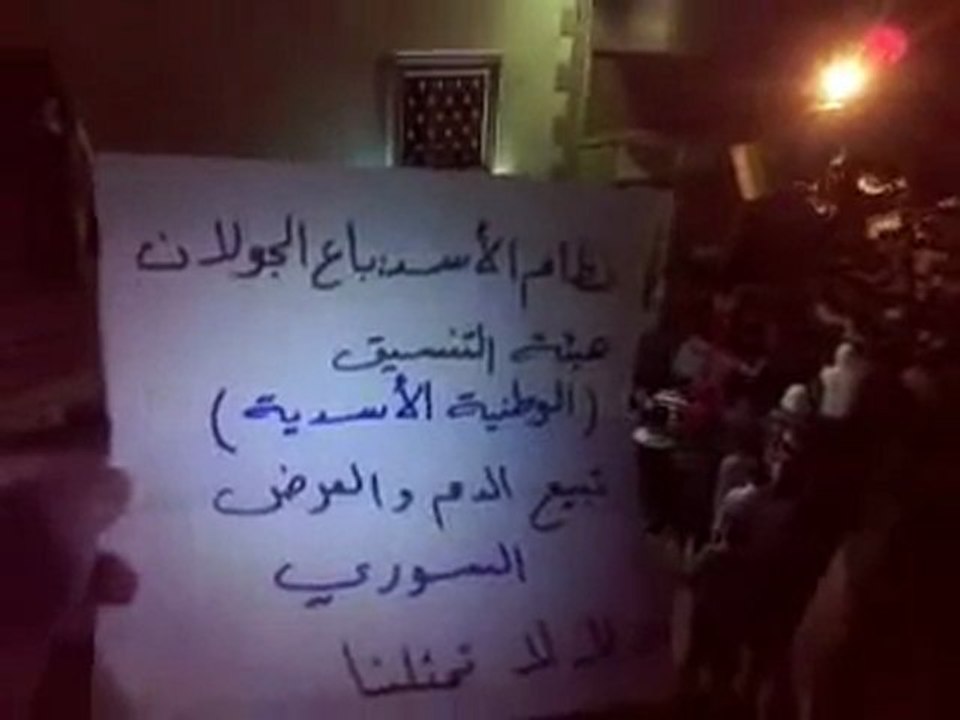 نظام الأسد باع الجولان
هيئة التنسيق
(الوطنية الأسدية)
تبيع الدم والعرض
السوري
لا لا لا تمثلنا